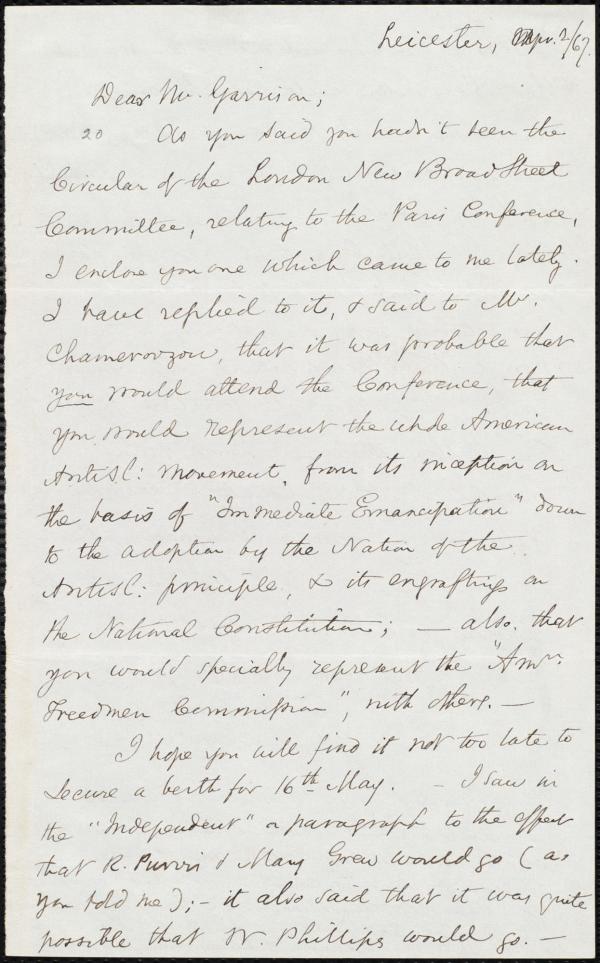 Leicester, Apr. 2/67.
Dear Mr. Garrison;
20 As you said you hadn't seen the
Circular of the London New Broad Street
Committee, relating to the Paris Conference,
I enclose you one which came to me lately.
I have replied to it, & said to Mr.
Chamerovzow, that it was probable that
you would attend the Conference, that
you would represent the whole American
AntiSl: movement, from its inception on
the basis of "Immediate Emancipation" down
to the adoption by the Nation of the
AntiSl: principle, & its engrafting on
the National Constitution; — also that
you would specially represent the "Amn.
Freedmen Commission", with others. —
I hope you will find it not too late to
secure a berth for 16th May. — I saw in
the "Independent" a paragraph to the effect
that R. Purvis & Mary Grew would go (as
you told me); – it also said that it was quite
possible that W. Phillips would go. —